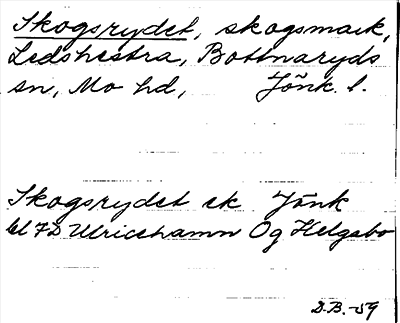 Skogsrydet, skogsmark,
Ledshestra, Bottnaryds
sn, Mo hd, Jönk. l.
Skogsrydet ek Jönk
bl 7D Ulricehamn Og Helgabo
D.B.-59